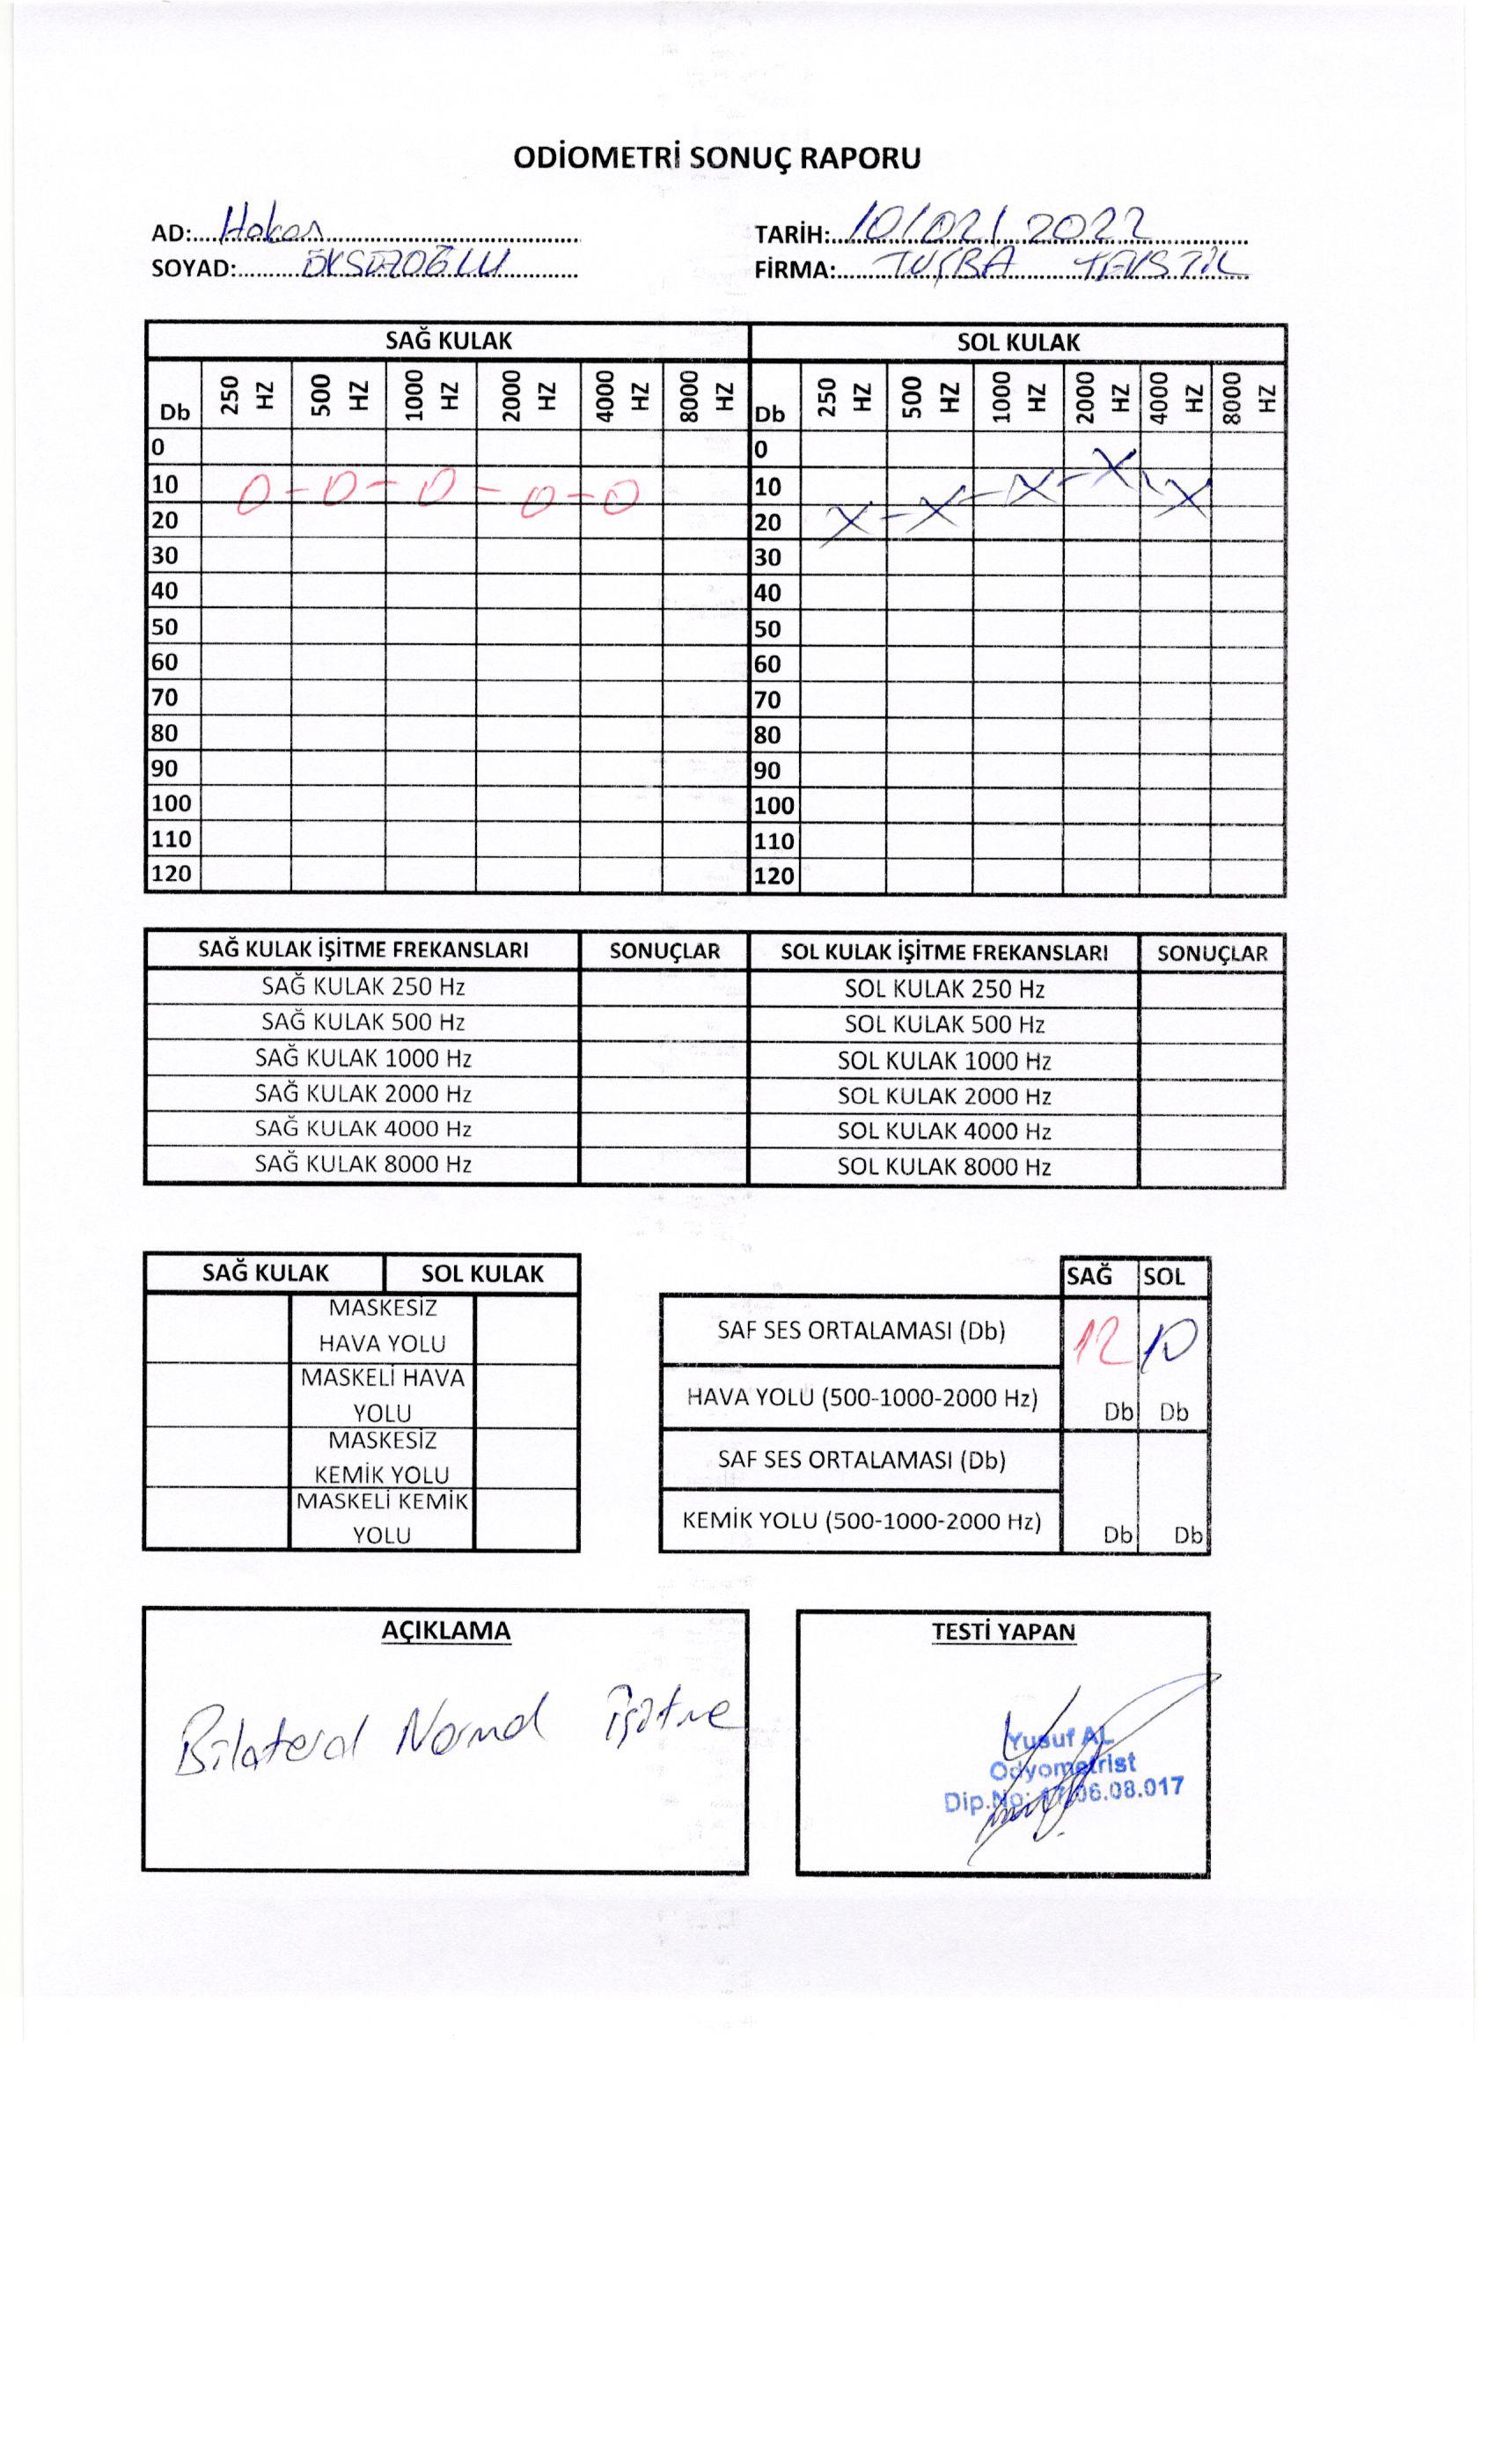 ODİOMETRİ SONUÇ RAPORU
AD: Hakan TARİH: 10/02/2022
SOYAD: ÖKSÜZOĞLU FİRMA: TUŞBA TEKSTİL
SAĞ KULAK SOL KULAK
Db 250 HZ 500 HZ 1000 HZ 2000 HZ 4000 HZ 8000 HZ Db 250 HZ 500 HZ 1000 HZ 2000 HZ 4000 HZ 8000 HZ
0 0
10 10
20 20
30 30
40 40
50 50
60 60
70 70
80 80
90 90
100 100
110 110
120 120
SAĞ KULAK İŞİTME FREKANSLARI SONUÇLAR SOL KULAK İŞİTME FREKANSLARI SONUÇLAR
SAĞ KULAK 250 Hz SOL KULAK 250 Hz
SAĞ KULAK 500 Hz SOL KULAK 500 Hz
SAĞ KULAK 1000 Hz SOL KULAK 1000 Hz
SAĞ KULAK 2000 Hz SOL KULAK 2000 Hz
SAĞ KULAK 4000 Hz SOL KULAK 4000 Hz
SAĞ KULAK 8000 Hz SOL KULAK 8000 Hz
SAĞ KULAK SOL KULAK
MASKESİZ
HAVA YOLU
MASKELİ HAVA
YOLU
MASKESİZ
KEMİK YOLU
MASKELİ KEMİK
YOLU
SAĞ SOL
SAF SES ORTALAMASI (Db) 12 10
HAVA YOLU (500-1000-2000 Hz) Db Db
SAF SES ORTALAMASI (Db)
KEMİK YOLU (500-1000-2000 Hz) Db Db
AÇIKLAMA
Bilateral Normal İşitme
TESTİ YAPAN
Yusuf AL
Odyometrist
Dip.No: 06.08.017